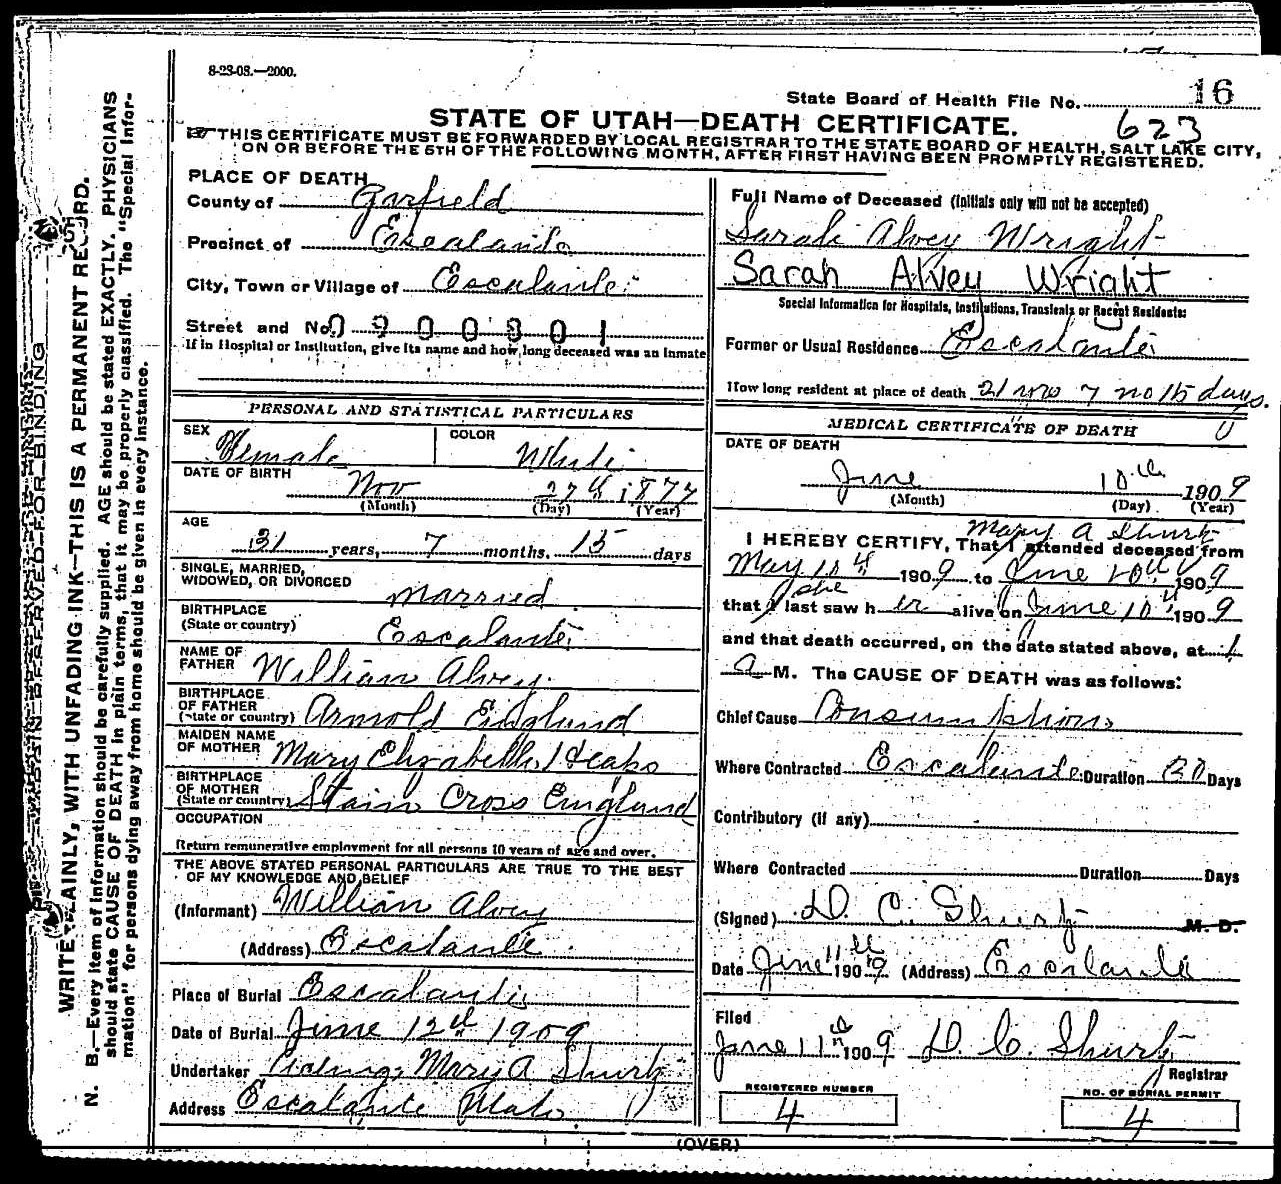 8-23-08.—2000.
State Board of Health File No. 16
STATE OF UTAH—DEATH CERTIFICATE.
623
THIS CERTIFICATE MUST BE FORWARDED BY LOCAL REGISTRAR TO THE STATE BOARD OF HEALTH, SALT LAKE CITY,
ON OR BEFORE THE 5TH OF THE FOLLOWING MONTH, AFTER FIRST HAVING BEEN PROMPTLY REGISTERED.
PLACE OF DEATH
County of Garfield
Precinct of Escalante
City, Town or Village of Escalante
Street and No. 0900801
If in Hospital or Institution, give its name and how long deceased was an inmate
PERSONAL AND STATISTICAL PARTICULARS
SEX Female COLOR White
DATE OF BIRTH Nov 27th 1877
(Month) (Day) (Year)
AGE
31 years, 7 months, 15 days
SINGLE, MARRIED,
WIDOWED, OR DIVORCED Married
BIRTHPLACE
(State or country) Escalante
NAME OF
FATHER William Alvey
BIRTHPLACE
OF FATHER
(State or country) Arnold England
MAIDEN NAME
OF MOTHER Mary Elizabeth Heaps
BIRTHPLACE
OF MOTHER
(State or country) Stain Cross England
OCCUPATION
Return remunerative employment for all persons 10 years of age and over.
THE ABOVE STATED PERSONAL PARTICULARS ARE TRUE TO THE BEST
OF MY KNOWLEDGE AND BELIEF
(Informant) William Alvey
(Address) Escalante
Place of Burial Escalante
Date of Burial June 12th 1909
Undertaker Acting, Mary A Shurtz
Address Escalante Utah
Full Name of Deceased (Initials only will not be accepted)
Sarah Alvey Wright
Sarah Alvey Wright
Special Information for Hospitals, Institutions, Transients or Recent Residents:
Former or Usual Residence Escalante
How long resident at place of death 31 yrs 7 mo 15 days.
MEDICAL CERTIFICATE OF DEATH
DATE OF DEATH
June 10th 1909
(Month) (Day) (Year)
Mary A Shurtz
I HEREBY CERTIFY, That I attended deceased from
May 10th 1909 to June 10th 1909
she
that I last saw her alive on June 10th 1909
and that death occurred, on the date stated above, at 1
a M. The CAUSE OF DEATH was as follows:
Chief Cause Consumption
Where Contracted Escalante Duration Days
Contributory (if any)
Where Contracted Duration Days
(Signed) D. C. Shurtz M. D.
Date June 11th 1909 (Address) Escalante
Filed
June 11th 1909 D. C. Shurtz
Registrar
REGISTERED NUMBER
4
NO. OF BURIAL PERMIT
4
(OVER)
MARGIN RESERVED FOR BINDING
WRITE PLAINLY, WITH UNFADING INK—THIS IS A PERMANENT RECORD.
N. B.—Every item of information should be carefully supplied. AGE should be stated EXACTLY. PHYSICIANS
should state CAUSE OF DEATH in plain terms, that it may be properly classified. The "Special Infor-
mation" for persons dying away from home should be given in every instance.